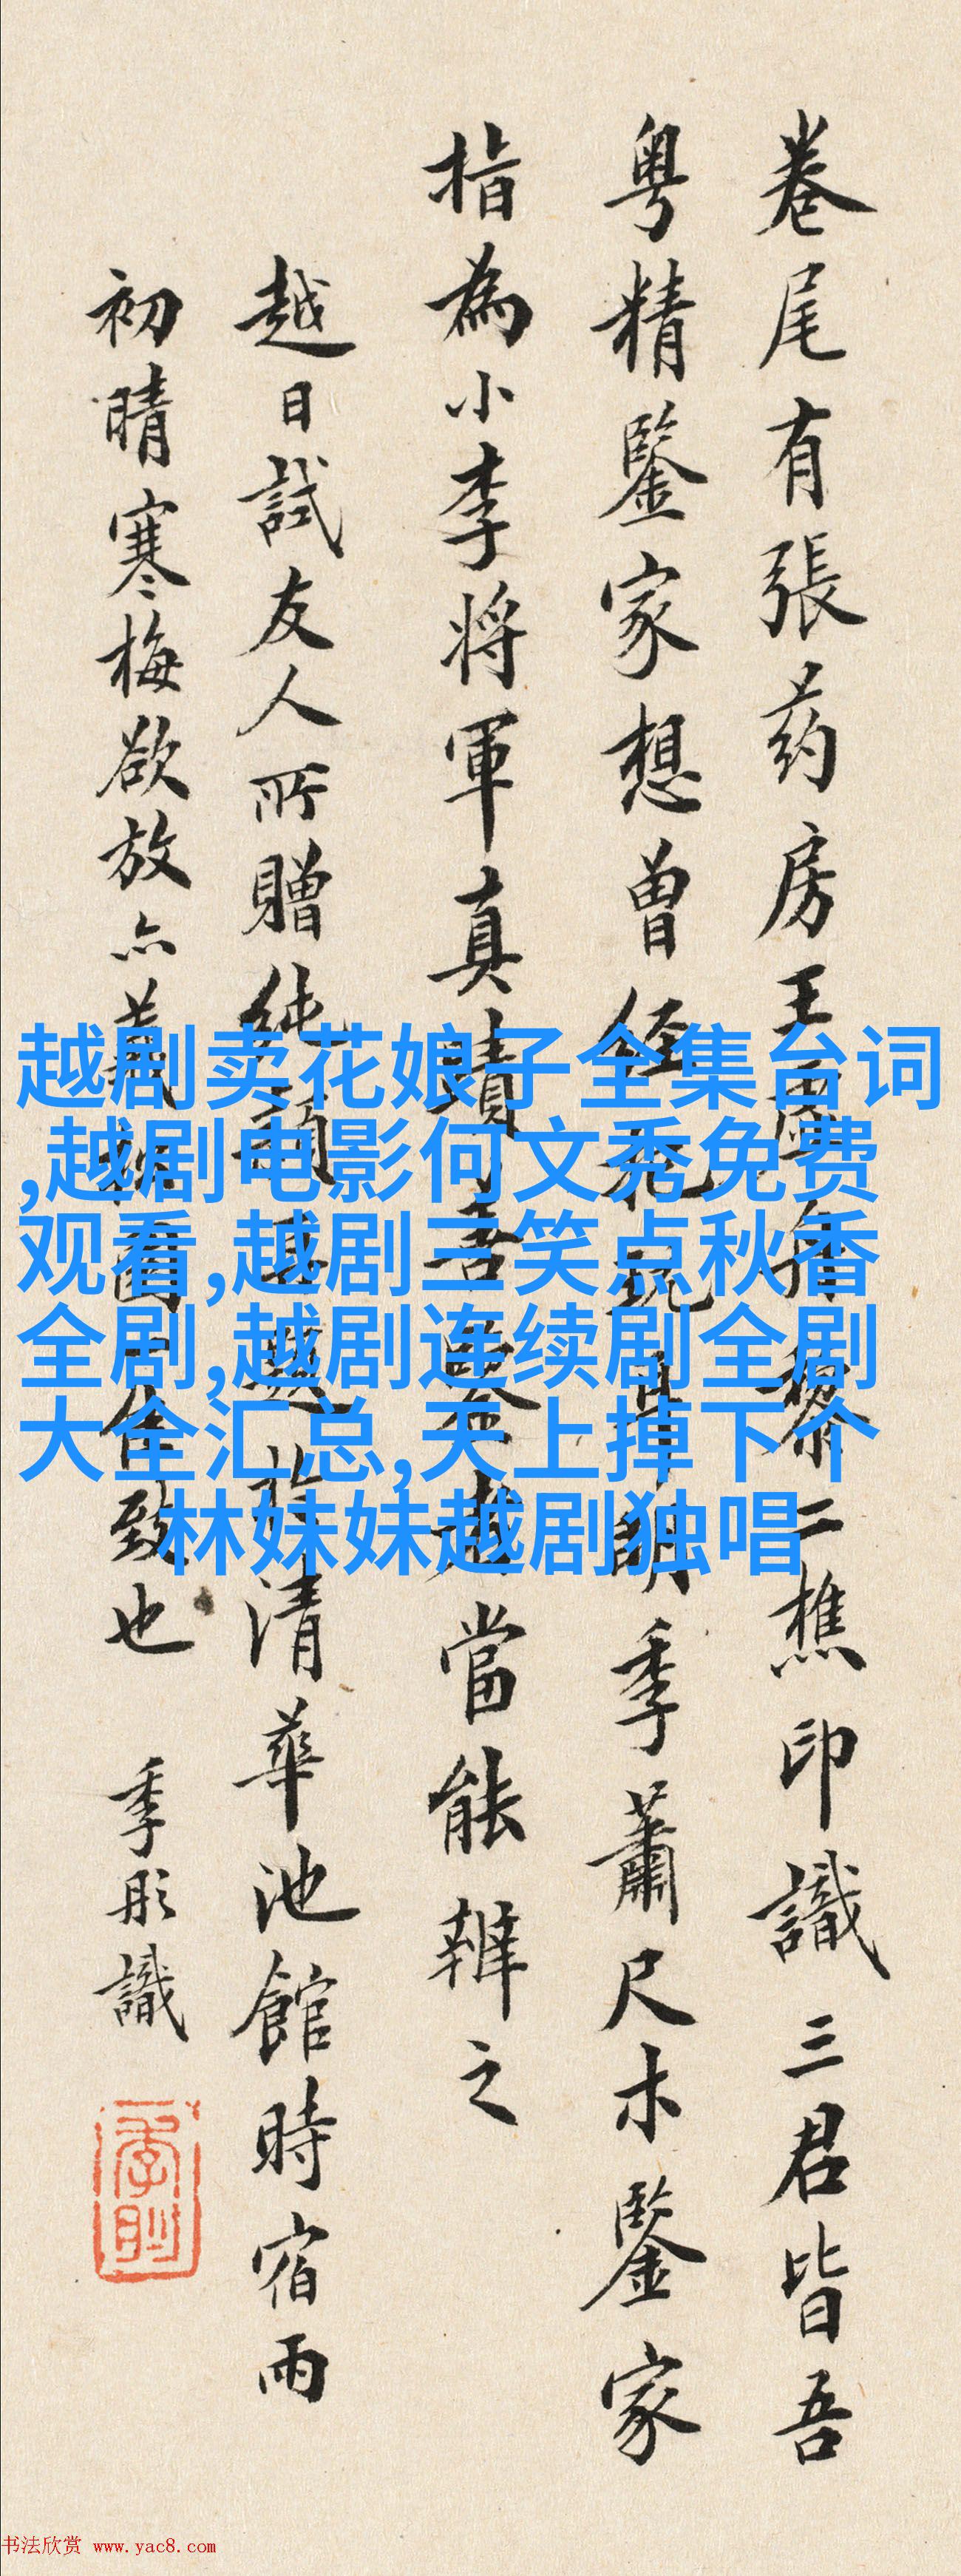 卷尾有張药房王
二樵印識三君皆吾
粤精鑒家想曾
季蕭尺木鑒家
指為小李將軍真蹟
當能辨之
越日試友人所贈純
清華池館時宿雨
初晴寒梅欲放亦
佳致也 季彤識
越剧卖花娘子全集台词
,越剧电影何文秀免费
观看,越剧三笑点秋香
全剧,越剧连续剧全剧
大全汇总,天上掉下个
林妹妹越剧独唱
书法欣赏 www.yac8.com